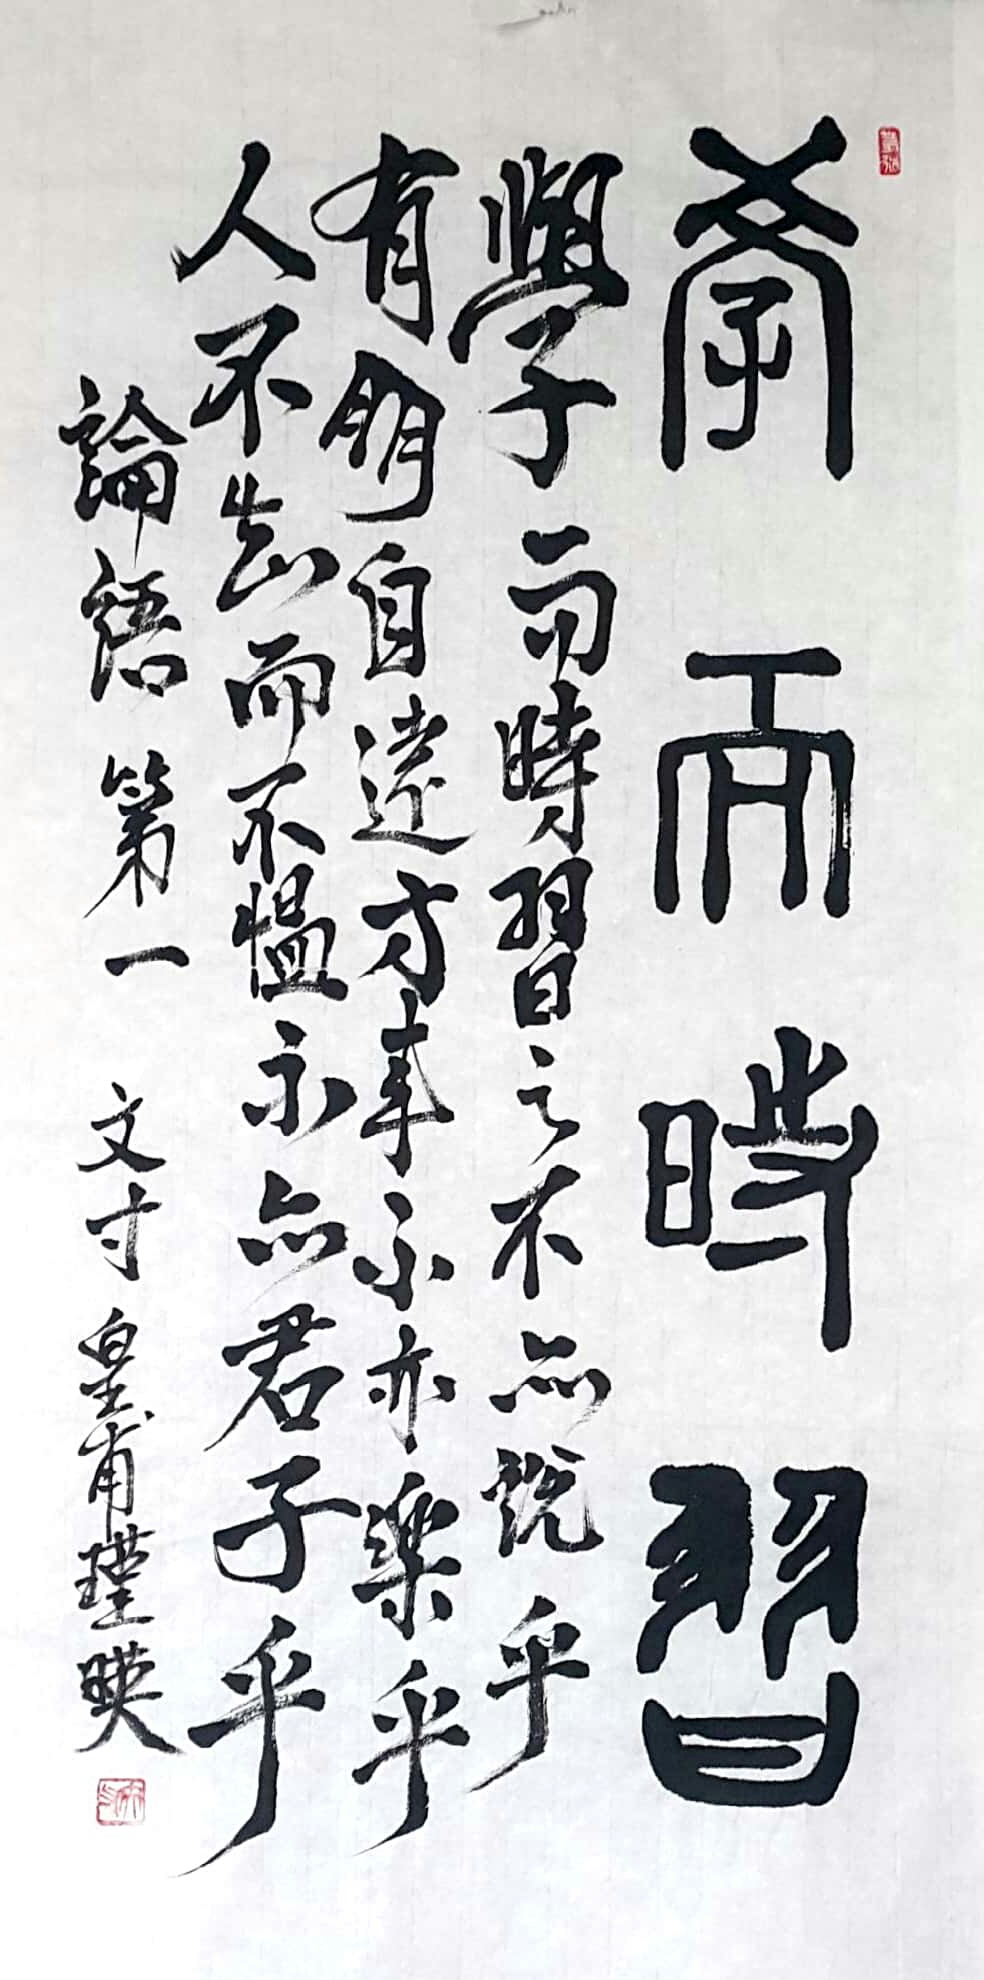 學而時習
學而時習之不亦說乎
有朋自遠方來不亦樂乎
人不知而不慍不亦君子乎
論語 第一 文寸 皇甫瑾暎